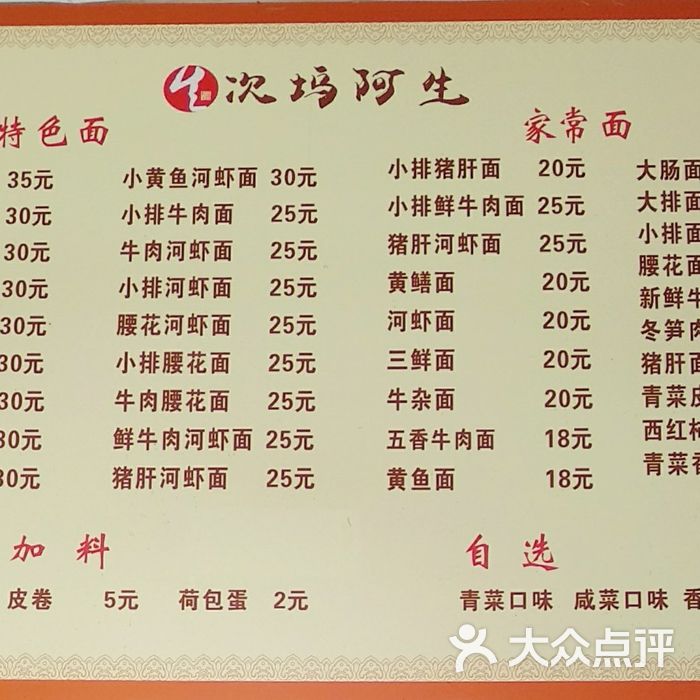 次坞阿生
特色面
35元
30元
30元
30元
30元
30元
30元
30元
30元
小黄鱼河虾面 30元
小排牛肉面 25元
牛肉河虾面 25元
小排河虾面 25元
腰花河虾面 25元
小排腰花面 25元
牛肉腰花面 25元
鲜牛肉河虾面 25元
猪肝河虾面 25元
家常面
小排猪肝面 20元
小排鲜牛肉面 25元
猪肝河虾面 25元
黄鳝面 20元
河虾面 20元
三鲜面 20元
牛杂面 20元
五香牛肉面 18元
黄鱼面 18元
大肠面
大排面
小排面
腰花面
新鲜牛
冬笋肉
猪肝面
青菜皮
西红柿
青菜香
加料
皮卷 5元 荷包蛋 2元
自选
青菜口味 咸菜口味 香
大众点评